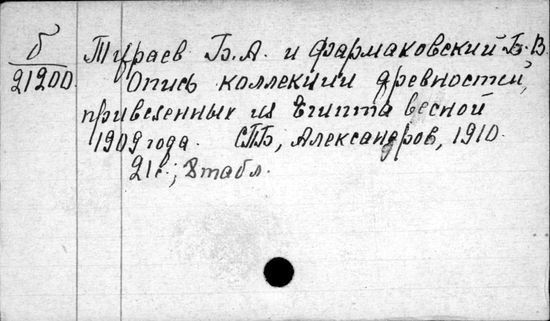 б Тураев Б.А. и Фармаковский Б.В.
21200 Опись коллекции древностей,
привезенных из Египта весной
1909 года. СПБ, Александров, 1910.
21с.; 8 табл.